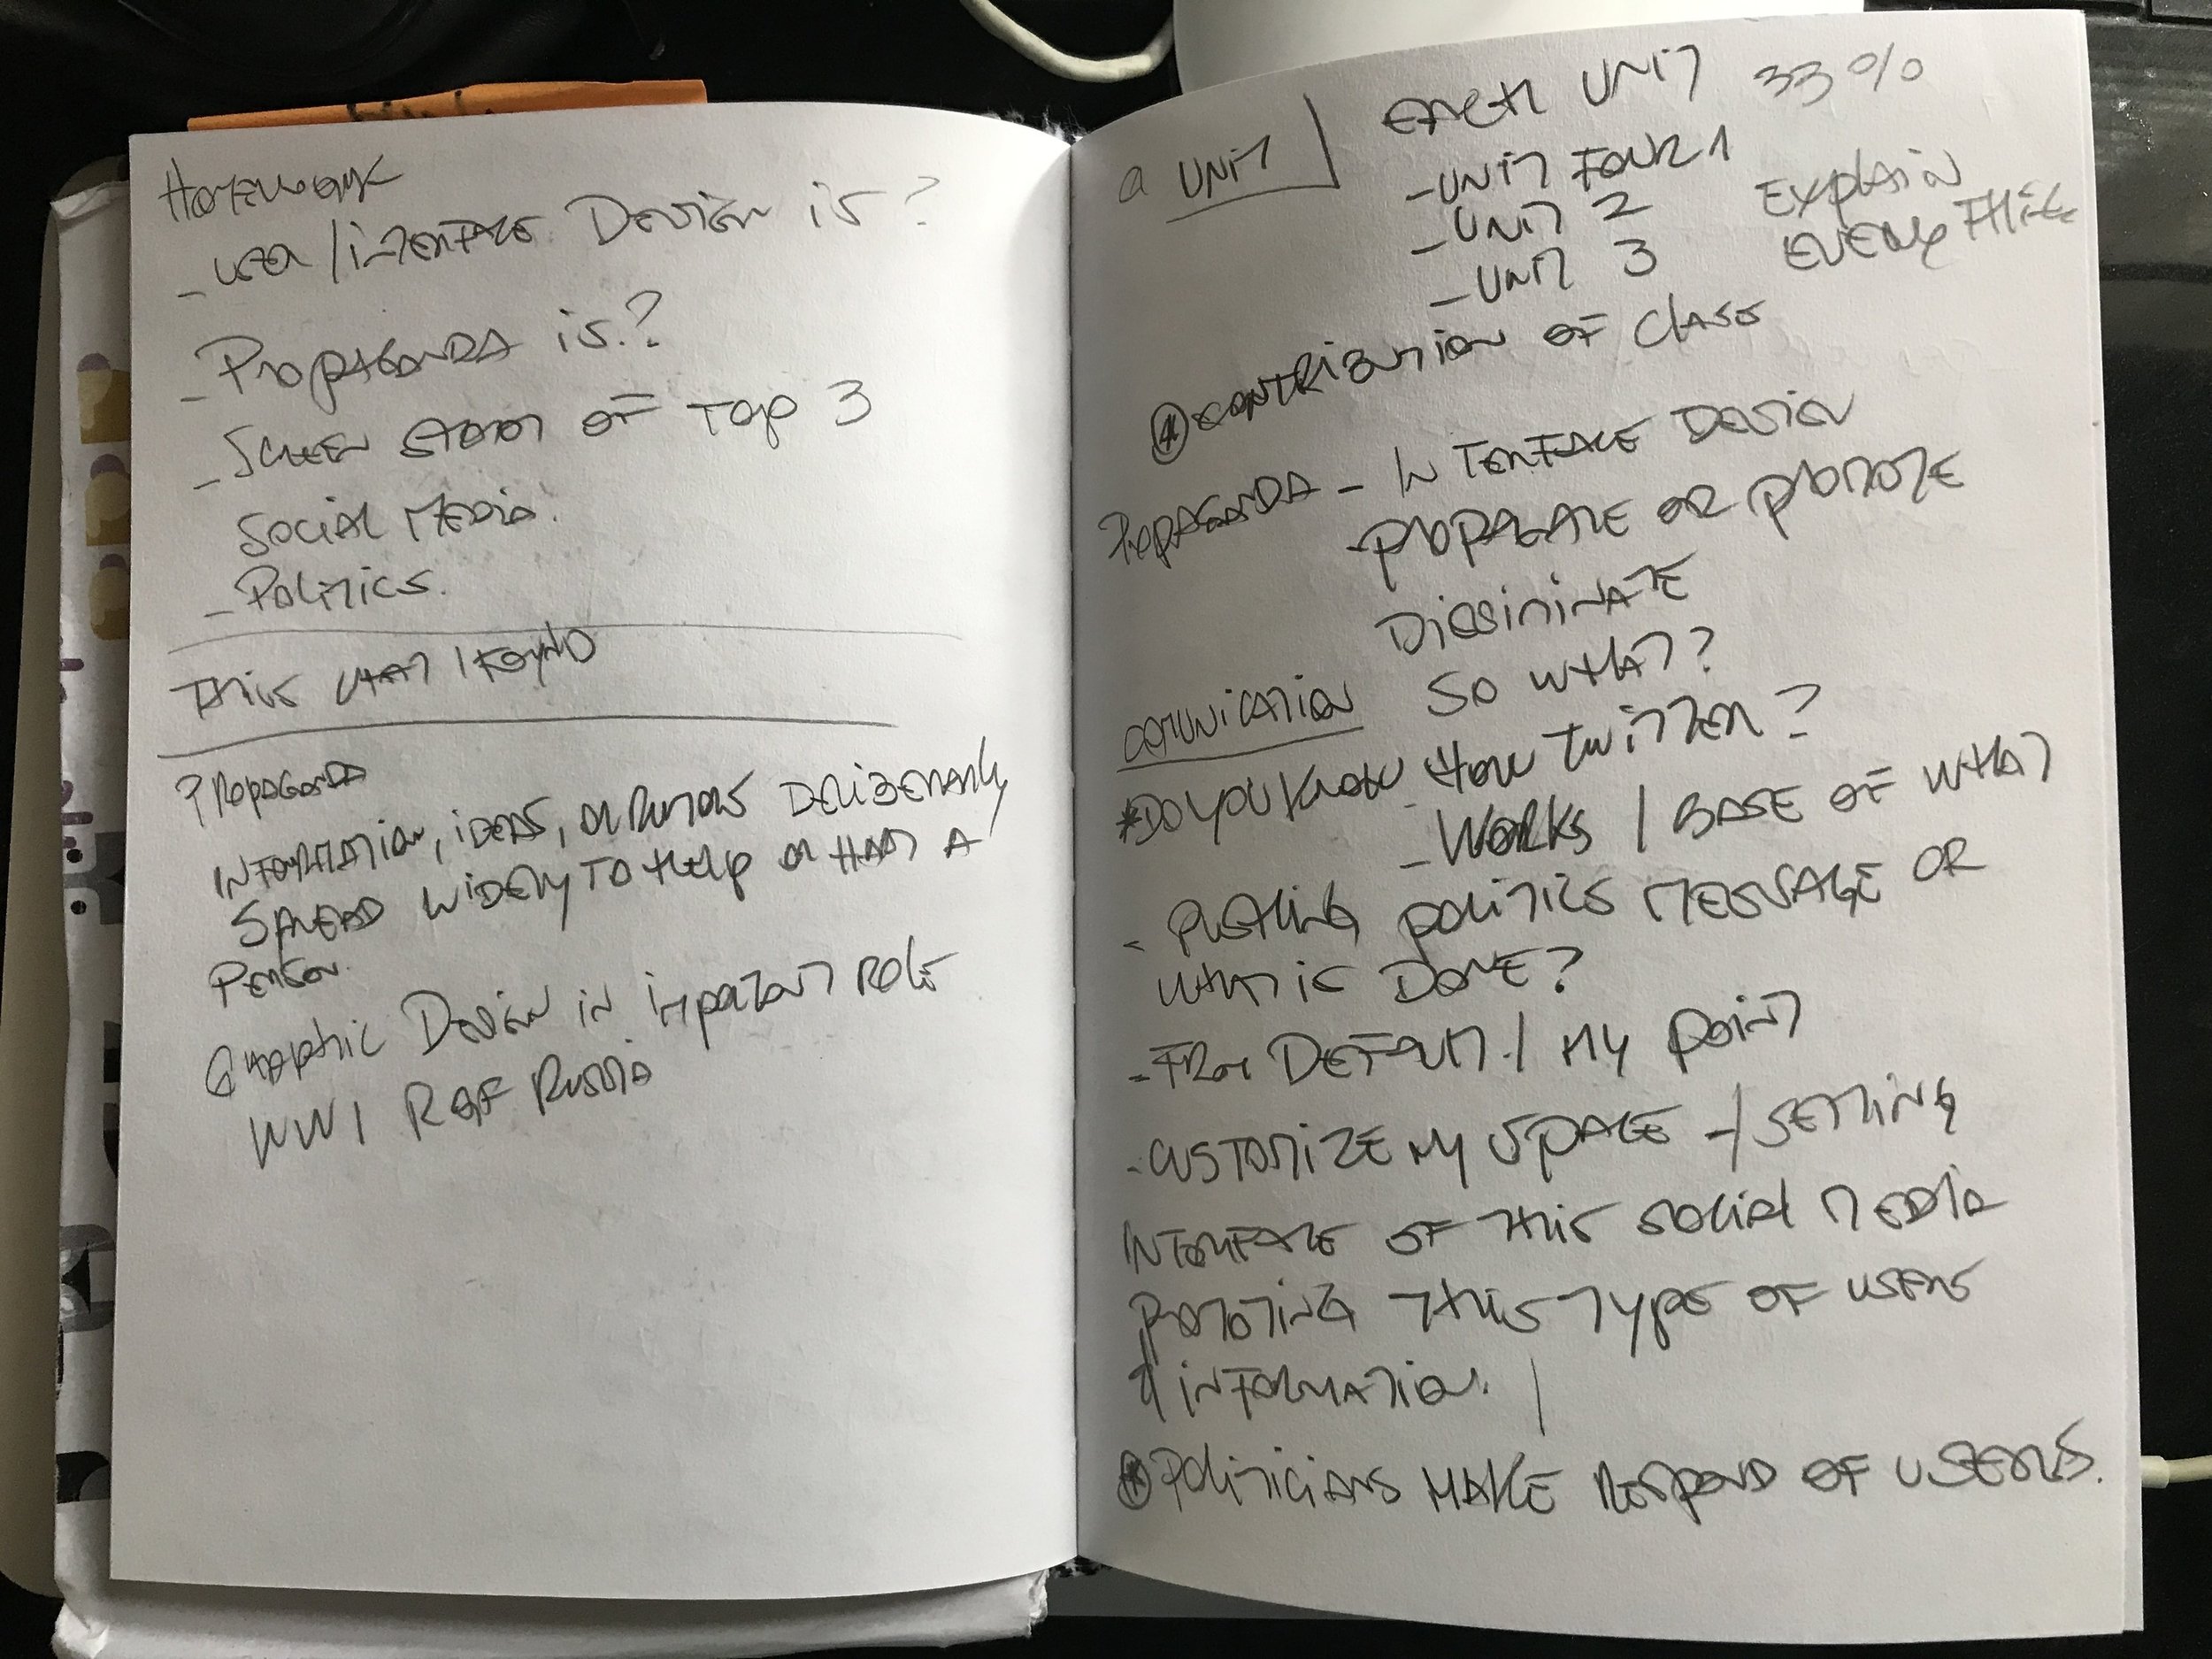 Homework
- user / interface Design is?
- Propaganda is?
- Screen shot of top 3
Social Media.
- Politics.
This what I found
Propaganda
Information, ideas, or rumors deliberately
spread widely to help or harm a
person.
Graphic Design in important role
WW1 Ref Russia
a Unit
Each Unit 33%
- Unit Four 1
- Unit 2 Explain
- Unit 3 everything
contribution of class
Propaganda - Interface Design
- propagate or promote
Dissiminate
Comunication So what?
* Do you know how twitter?
- Works / Base of what
- Pushing politics message or
what is Done?
- From Default / My point
- Customize my space - / setting
Interface of this social media
promoting this type of users
& information. /
Politicians make respond of users.